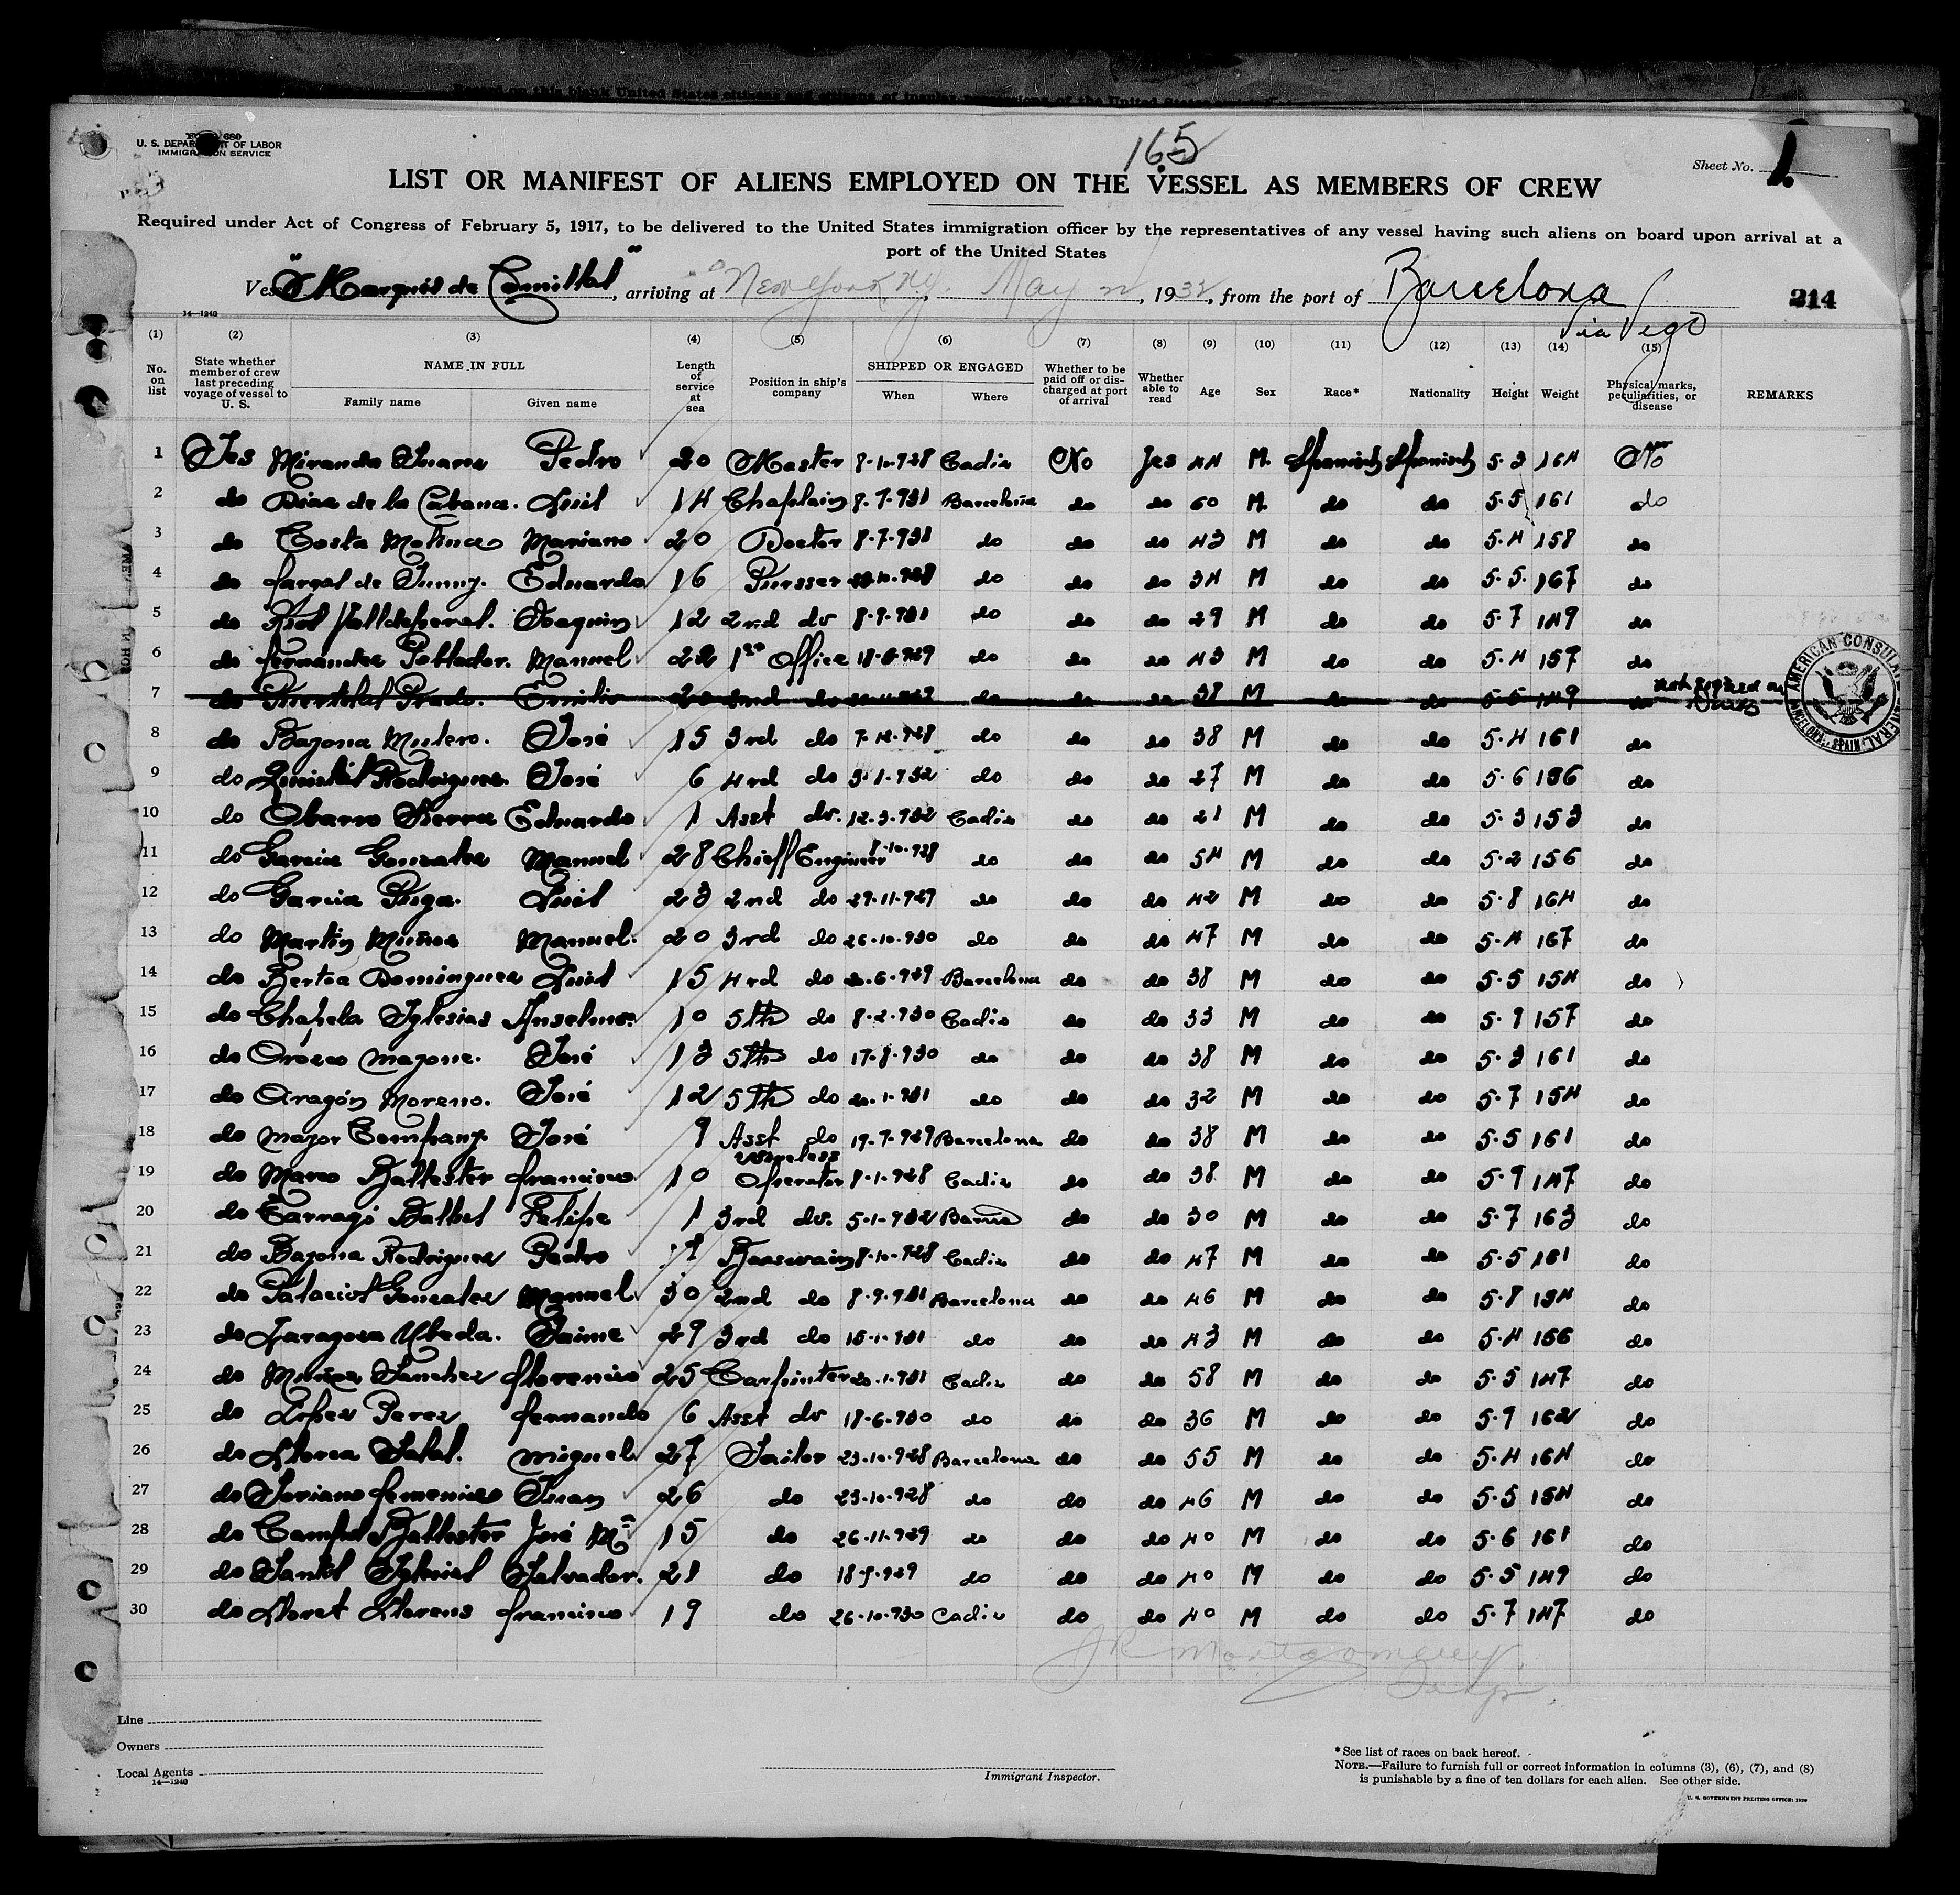 165
FORM 680
U. S. DEPARTMENT OF LABOR
IMMIGRATION SERVICE
Sheet No. 1
LIST OR MANIFEST OF ALIENS EMPLOYED ON THE VESSEL AS MEMBERS OF CREW
Required under Act of Congress of February 5, 1917, to be delivered to the United States immigration officer by the representatives of any vessel having such aliens on board upon arrival at a
port of the United States
Vessel "Marqués de Comillas", arriving at New York, N.Y., May 2, 1932, from the port of Barcelona
via Vigo
214
14—1240
(1) (2) (3) (4) (5) (6) (7) (8) (9) (10) (11) (12) (13) (14) (15)
No. on list State whether member of crew last preceding voyage of vessel to U. S. NAME IN FULL Family name Given name Length of service at sea Position in ship's company SHIPPED OR ENGAGED When Where Whether to be paid off or discharged at port of arrival Whether able to read Age Sex Race* Nationality Height Weight Physical marks, peculiarities, or disease REMARKS
1 Yes Miranda Pedro 20 Master 8-10-928 Cadiz No Yes 44 M. Spanisch Spanisch 5-3 164 No
2 do Diaz de la Cabana. Luis 14 Chaplain 8-7-931 Barcelona do do 60 M. do do 5-5 161 do
3 do Costa Molinas Mariano 20 Doctor 8-7-931 do do do 43 M do do 5-4 158 do
4 do Eduardo 16 Pursser do do do 34 M do do 5-5 167 do
5 do Joaquin 12 2nd do 8-9-931 do do do 29 M do do 5-7 149 do
6 do fernandez Poblador. Manuel 22 1st Office do do do 43 M do do 5-4 157 do
7 do Prado. Emilio 20 2nd do do do do 38 M do do 5-5 149 do not signed on
8 do Bazona Mulero. José 15 3rd do 7-12-928 do do do 38 M do do 5-4 161 do
9 do Rodriguez José 6 4rd do 3-1-932 do do do 27 M do do 5-6 156 do
10 do Obarro Sierra Eduardo 1 Asst do. 12-3-932 Cadiz do do 21 M do do 5-3 153 do
11 do Garcia Gonzalez Manuel 28 Chieff Engineer 8-10-928 do do do 54 M do do 5-2 156 do
12 do Garcia Puga. Luis 23 2nd do 29-11-929 do do do 42 M do do 5-8 164 do
13 do Martín Muñoz Manuel. 20 3rd do 26-10-930 do do do 47 M do do 5-4 167 do
14 do Bertoa Dominguez Luis 15 4rd do Barcelona do do 38 M do do 5-5 154 do
15 do Chapela Iglesias Anselmo. 10 5th do 8-2-930 Cadiz do do 33 M do do 5-9 157 do
16 do Orozco José 13 5th do 17-8-930 do do do 38 M do do 5-3 161 do
17 do Aragón Moreno. José 12 5th do do do do 32 M do do 5-7 154 do
18 do Mayor Company José 9 Asst do 19-7-929 Barcelona do do 38 M do do 5-5 161 do
19 do Marco Ballester francisco 10 Wireless Operator 8-1-928 Cadiz do do 38 M do do 5-9 147 do
20 do Tarragó Balbel Felipe 1 3rd do. 5-1-932 Barna do do 30 M do do 5-7 163 do
21 do Bazona Rodriguez Pedro Boaswain 8-10-928 Cadiz do do 47 M do do 5-5 161 do
22 do Palacios Gonzalez Manuel 30 2nd do 8-9-931 Barcelona do do 46 M do do 5-8 154 do
23 do Zaragoza Ubeda. Jaime 29 3rd do 15-1-931 do do do 43 M do do 5-4 156 do
24 do Muñoz Sanchez florencio 25 Carpinter Cadiz do do 58 M do do 5-5 147 do
25 do Lopez Perez fernando 6 Asst do 18-6-930 do do do 36 M do do 5-9 162 do
26 do Llorca Miguel 27 Sailor 23-10-928 Barcelona do do 55 M do do 5-4 164 do
27 do Soriano femenias Juan 26 do 23-10-928 do do do 46 M do do 5-5 154 do
28 do Ballester José Mª 15 do 26-11-929 do do do 40 M do do 5-6 161 do
29 do Salvador. 21 do 18-9-929 do do do 40 M do do 5-5 149 do
30 do Lloret Llorens francisco 19 do 26-10-930 Cadiz do do 40 M do do 5-7 147 do
AMERICAN CONSULATE GENERAL BARCELONA, SPAIN
JR Montgomery
Line
Owners
Local Agents
14—1240
Immigrant Inspector.
* See list of races on back hereof.
NOTE.—Failure to furnish full or correct information in columns (3), (6), (7), and (8)
is punishable by a fine of ten dollars for each alien. See other side.
U. S. GOVERNMENT PRINTING OFFICE: 1929